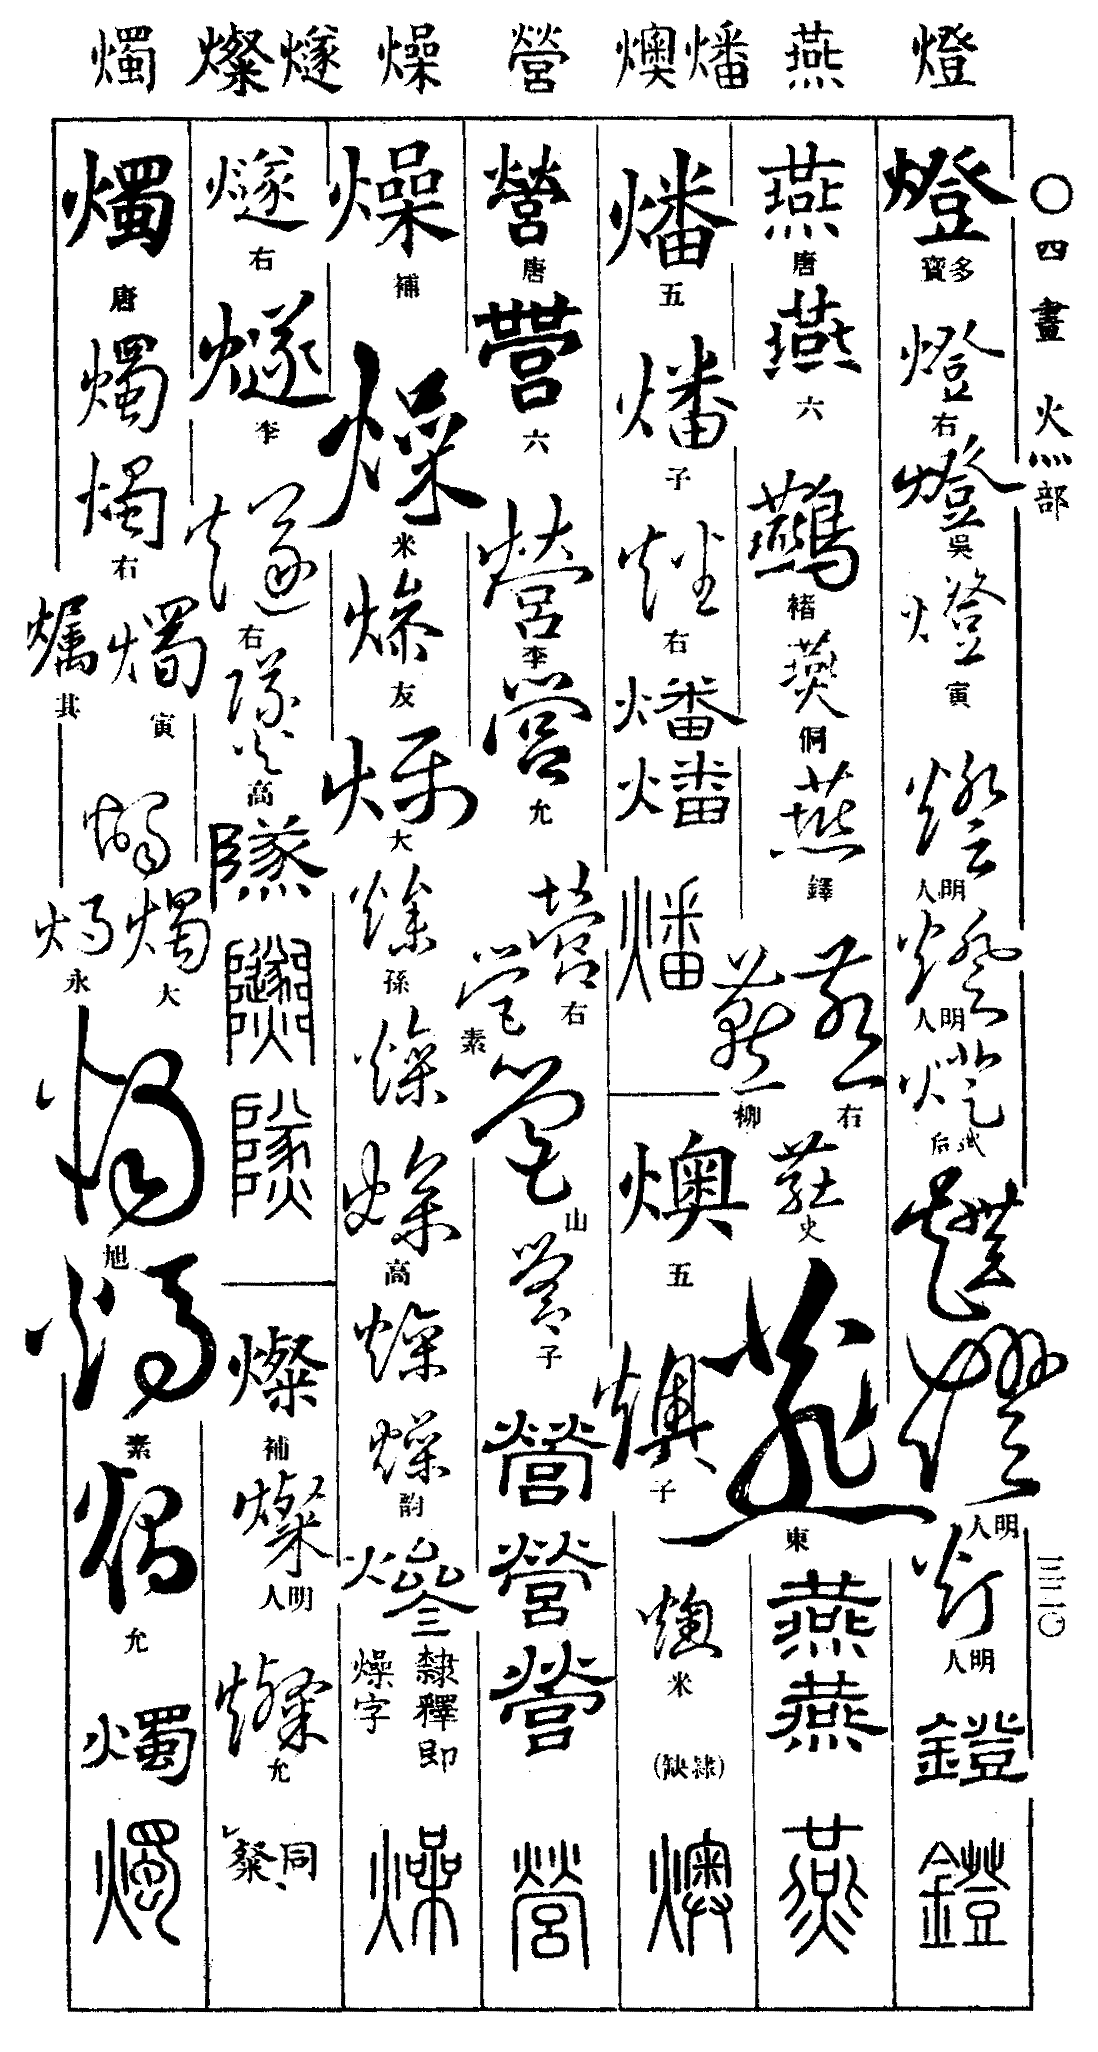 燈 燕 燔 燠 營 燥 燧 燦 燭
〇四畫 火灬部
三二〇
燈 多寶
燈 右
燈 吳
燈 寅
燈 明人
燈 明人
燈 武后
燈
燈 明人
灯 明人
鐙
鐙
燕 唐
燕 六
鷰 褚
燕 侗
燕 鐸
燕 右
燕 柳
燕 史
燕 東
燕
燕
燕
燔 五
燔 子
燔 右
燔
燔
燔
燠 五
燠 子
燠 米
(隸缺)
燠
營 唐
營 六
營 李
營 允
營 右
營 素
營 山
營 子
營
營
營
營
燥 補
燥 米
燥 友
燥 大
燥 孫
燥
燥 高
燥
燥 韵
隸釋即燥字
燥
燧 右
燧 李
燧 右
燧 高
燧
燧
燦 補
燦 明人
燦 允
同粲
燭 唐
燭
燭 右
燭 寅
爥 其
燭
燭 大
燭 永
燭 旭
燭 素
燭 允
燭
燭